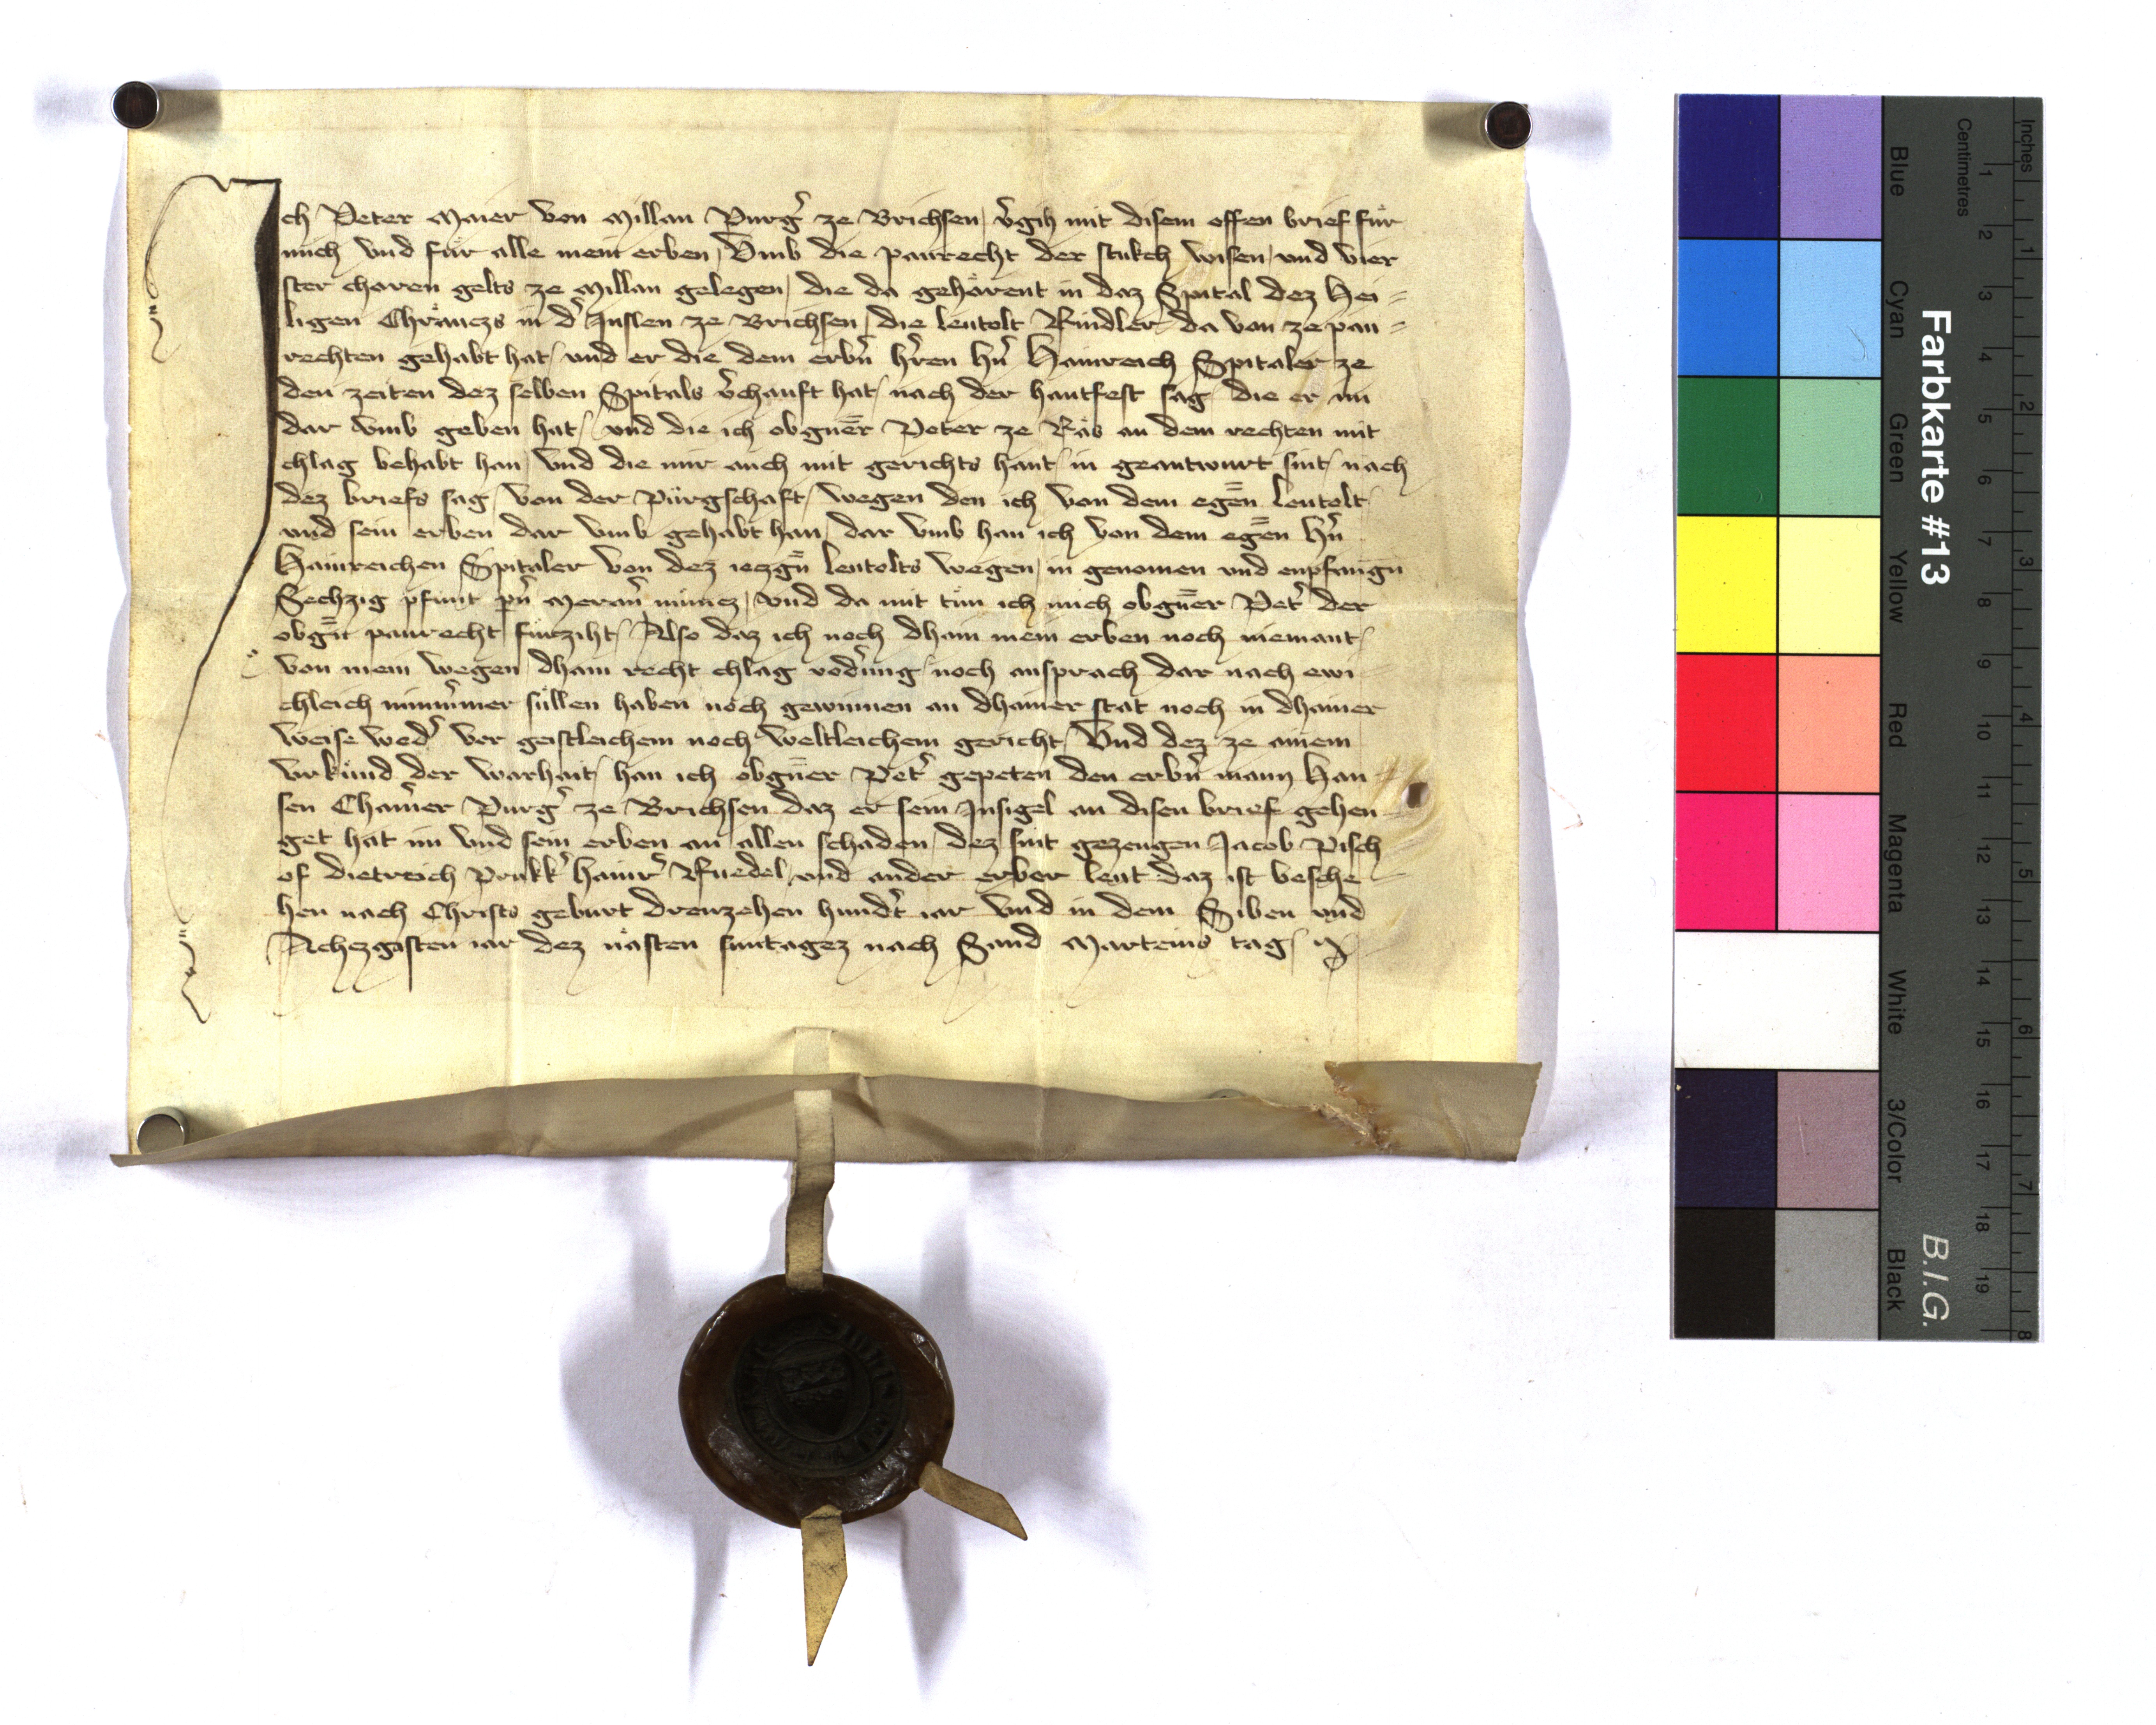 Ich Peter Maier von Millan Purg̛ ze Brichsen v̛gih mit disem offen brief fuͤr
mich vnd fuͤr alle mein erben, Vmb die paurecht der stukch wisen, vnd vier
ster choren gelts ze Millan gelegen, die da gehoͤrent in daz Spital dez Hei=
ligen Chraͤuczs in d̛ Inslen ze Brichsen, die Leutolt Rindler da von ze pau=
rechten gehabt hat, vnd er die dem erbn̛ hr̛en hn̛ Hainreich Spitaler ze
den zeiten dez selben Spitals v̛chauft hat, nach der hantfest sag, die er im
dar vmb geben hat, vnd die ich obgnēr Peter ze Raͤs an dem rechten mit
chlag behabt han, vnd die mir auch mit gerichts hant in geantwurt sint, nach
dez briefs sag, von der Pürgschaft, wegen den ich von dem egēn Leutolt
vnd sein erben dar vmb gehabt han, dar vmb han ich von dem egēn hn̛
Hainreichen Spitaler von dez iezgn̄ Leutolts wegen, in genomen vnd enpfangn
Sechzig pfunt pn̛ Meran̛ münicz, vnd da mit tuͤn ich mich obgnēr Pet̛ der
obgn̄t paurecht fürziht, Also daz ich noch dhain mein erben noch niemant
von mein wegen, dhain recht chlag vod̛ung noch ansprach dar nach ewi
chleich nimm̛mer süllen haben noch gewinnen an dhainer stat noch in dhainer
weise wed̛ vor geistleichem noch weltleichem gericht, Vnd dez ze ainem
vrkuͤnd der warhait, han ich obgnēr Pet̛ gepeten den erbn̛ mann Han=
sen Cham̛er Purg̛ ze Brichsen daz er sein Insigel an disen brief gehen=
get hat im vnd sein erben an allen schaden, dez sint gezeugen Jacob Pisch
of Dietreich Prukk̛ Hainr̛ Ruedel, vnd ander erber leut daz ist besche=
hen nach Christs geburt drewzehen hund̛t iar vnd in dem Siben vnd
Achczgisten iar dez naͤsten suntagez nach Sand Marteins tag,
Farbkarte #13
B.I.G.
Centimetres
Inches
Blue
Cyan
Green
Yellow
Red
Magenta
White
3/Color
Black
1 2 3 4 5 6 7 8 9 10 11 12 13 14 15 16 17 18 19
1 2 3 4 5 6 7 8